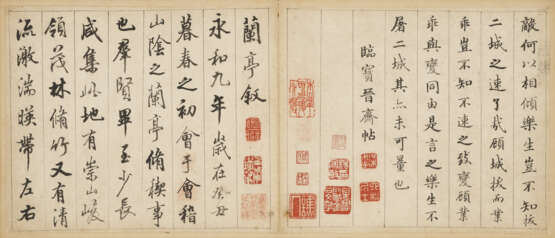 敵何以相傾樂生豈不知拔
二城之速了哉顧城拔而業
乖豈不知不速之致變顧業
乖與變同由是言之樂生不
屠二城其亦未可量也
臨寶晉齋帖
蘭亭敘
永和九年歲在癸丑
暮春之初會于會稽
山陰之蘭亭脩禊事
也羣賢畢至少長
咸集此地有崇山峻
領茂林脩竹又有清
流激湍暎帶左右